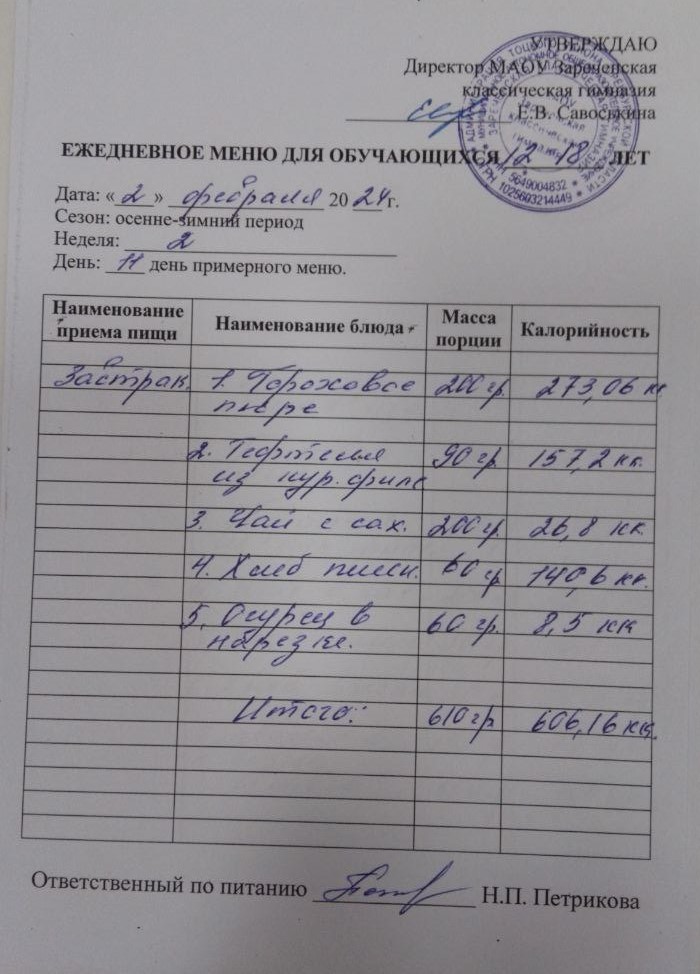 УТВЕРЖДАЮ
Директор МАОУ Зареченская
классическая гимназия
Е.В. Савоськина
ЕЖЕДНЕВНОЕ МЕНЮ ДЛЯ ОБУЧАЮЩИХСЯ 12-18 ЛЕТ
ИНН 5649004832 * ОГРН 1025603214449
Дата: « 2 » февраля 2024 г.
Сезон: осенне-зимний период
Неделя: 2
День: 11 день примерного меню.
Наименование приема пищи Наименование блюда Масса порции Калорийность
Завтрак. 1. Гороховое 200 гр. 273,06 кк
пюре
2. Тефтелья 90 гр. 157,2 кк.
из кур. филе
3. Чай с сах. 200 гр. 26,8 кк.
4. Хлеб пшен. 60 гр 140,6 кк.
5. Огурец в 60 гр. 8,5 кк
нарезке.
Итого: 610 гр 606,16 кк.
Ответственный по питанию Н.П. Петрикова